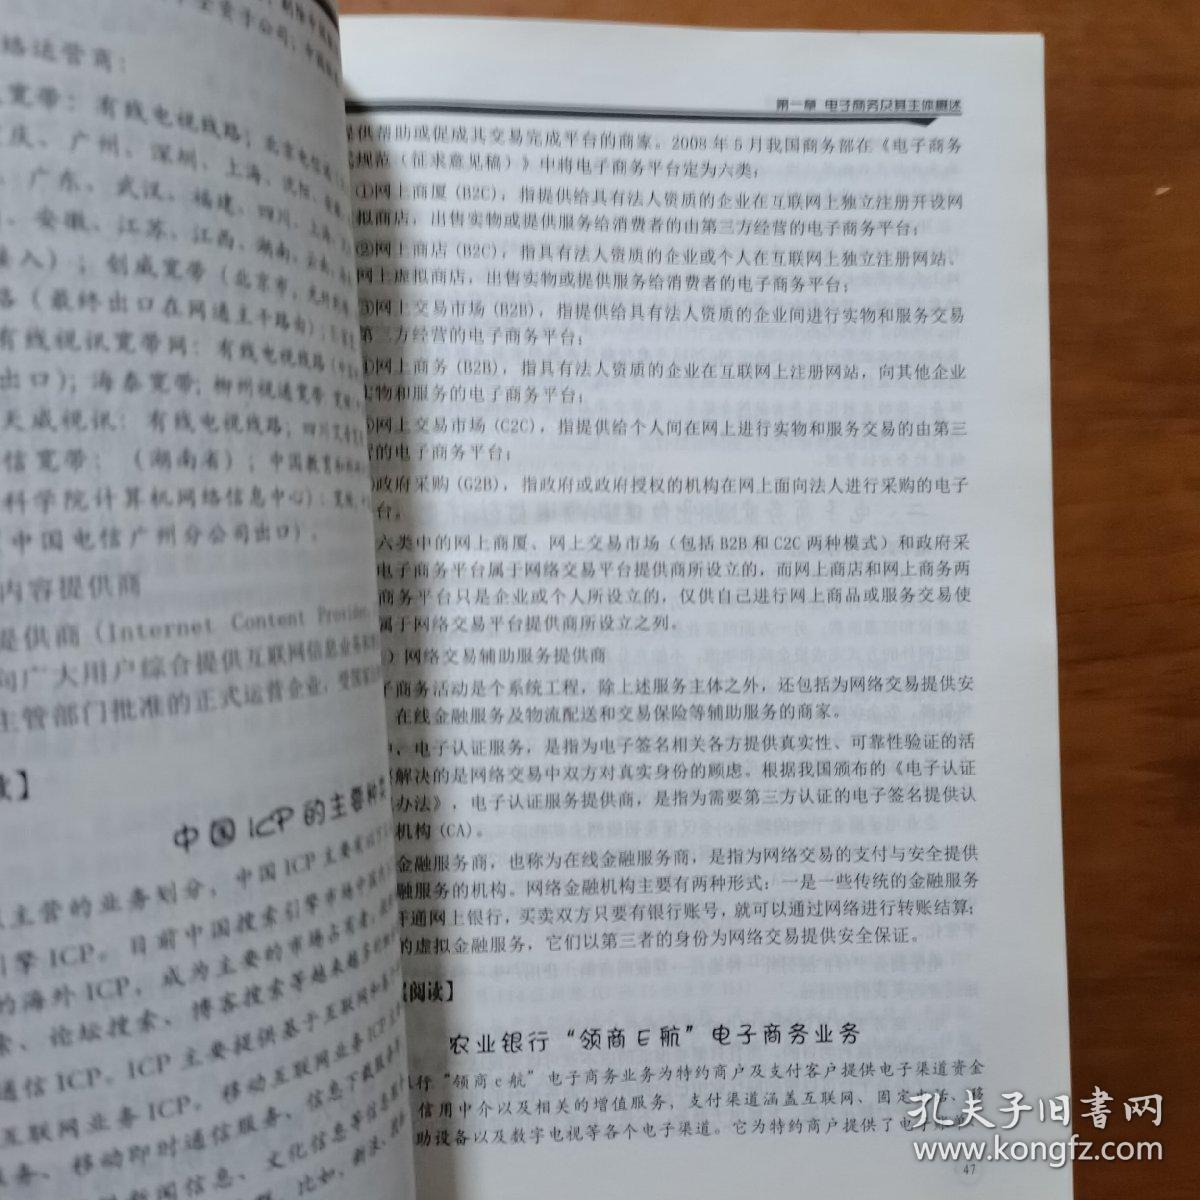 络运营商：
宽带：有线电视线路；北京电信通
庆、广州、深圳、上海、沈阳、
、广东、武汉、福建、四川、上海
、安徽、江苏、江西、湖南、云南、
接入）；创威宽带（北京市，
络（最终出口在网通主干路由）；
有线视讯宽带网：有线电视线路
出口）；海泰宽带；柳州视通宽带
天威视讯：有线电视线路；四川艾普宽
信宽带：（湖南省）；中国教育和科研
科学院计算机网络信息中心）：宽
中国电信广州分公司出口）。
内容提供商
提供商（Internet Content Provider,
向广大用户综合提供互联网信息业务和
主管部门批准的正式运营企业，受国家
读】
中国ICP的主要种类
主营的业务划分，中国ICP主要有以下
擎ICP。目前中国搜索引擎市场中国
的海外ICP，成为主要的市场占有者，
索、论坛搜索、博客搜索等越来越多的
通信ICP。ICP主要提供基于互联网和
互联网业务ICP。移动互联网业务ICP
服务、移动即时通信服务、信息下载服务
新闻信息、文化信息等信息服
比如，新浪、
第一章 电子商务及其主体概述
提供帮助或促成其交易完成平台的商家。2008年5月我国商务部在《电子商务
规范（征求意见稿）》中将电子商务平台定为六类；
①网上商厦（B2C），指提供给具有法人资质的企业在互联网上独立注册开设网
拟商店，出售实物或提供服务给消费者的由第三方经营的电子商务平台；
②网上商店（B2C），指具有法人资质的企业或个人在互联网上独立注册网站、
网上虚拟商店，出售实物或提供服务给消费者的电子商务平台；
③网上交易市场（B2B），指提供给具有法人资质的企业间进行实物和服务交易
第三方经营的电子商务平台；
网上商务（B2B），指具有法人资质的企业在互联网上注册网站，向其他企业
实物和服务的电子商务平台；
网上交易市场（C2C），指提供给个人间在网上进行实物和服务交易的由第三
营的电子商务平台；
政府采购（G2B），指政府或政府授权的机构在网上面向法人进行采购的电子
台。
六类中的网上商厦、网上交易市场（包括B2B和C2C两种模式）和政府采
电子商务平台属于网络交易平台提供商所设立的，而网上商店和网上商务两
商务平台只是企业或个人所设立的，仅供自己进行网上商品或服务交易使
属于网络交易平台提供商所设立之列。
）网络交易辅助服务提供商
子商务活动是个系统工程，除上述服务主体之外，还包括为网络交易提供安
在线金融服务及物流配送和交易保险等辅助服务的商家。
中，电子认证服务，是指为电子签名相关各方提供真实性、可靠性验证的活
解决的是网络交易中双方对真实身份的顾虑。根据我国颁布的《电子认证
办法》，电子认证服务提供商，是指为需要第三方认证的电子签名提供认
机构（CA）。
金融服务商，也称为在线金融服务商，是指为网络交易的支付与安全提供
融服务的机构。网络金融机构主要有两种形式：一是一些传统的金融服务
开通网上银行，买卖双方只要有银行账号，就可以通过网络进行转账结算；
的虚拟金融服务，它们以第三者的身份为网络交易提供安全保证。
【阅读】
农业银行“领商E航”电子商务业务
行“领商e航”电子商务业务为特约商户及支付客户提供电子渠道资金
信用中介以及相关的增值服务，支付渠道涵盖互联网、固定电话、移
助设备以及数字电视等各个电子渠道。它为特约商户提供了电子
47
孔夫子旧书网
www.kongfz.com